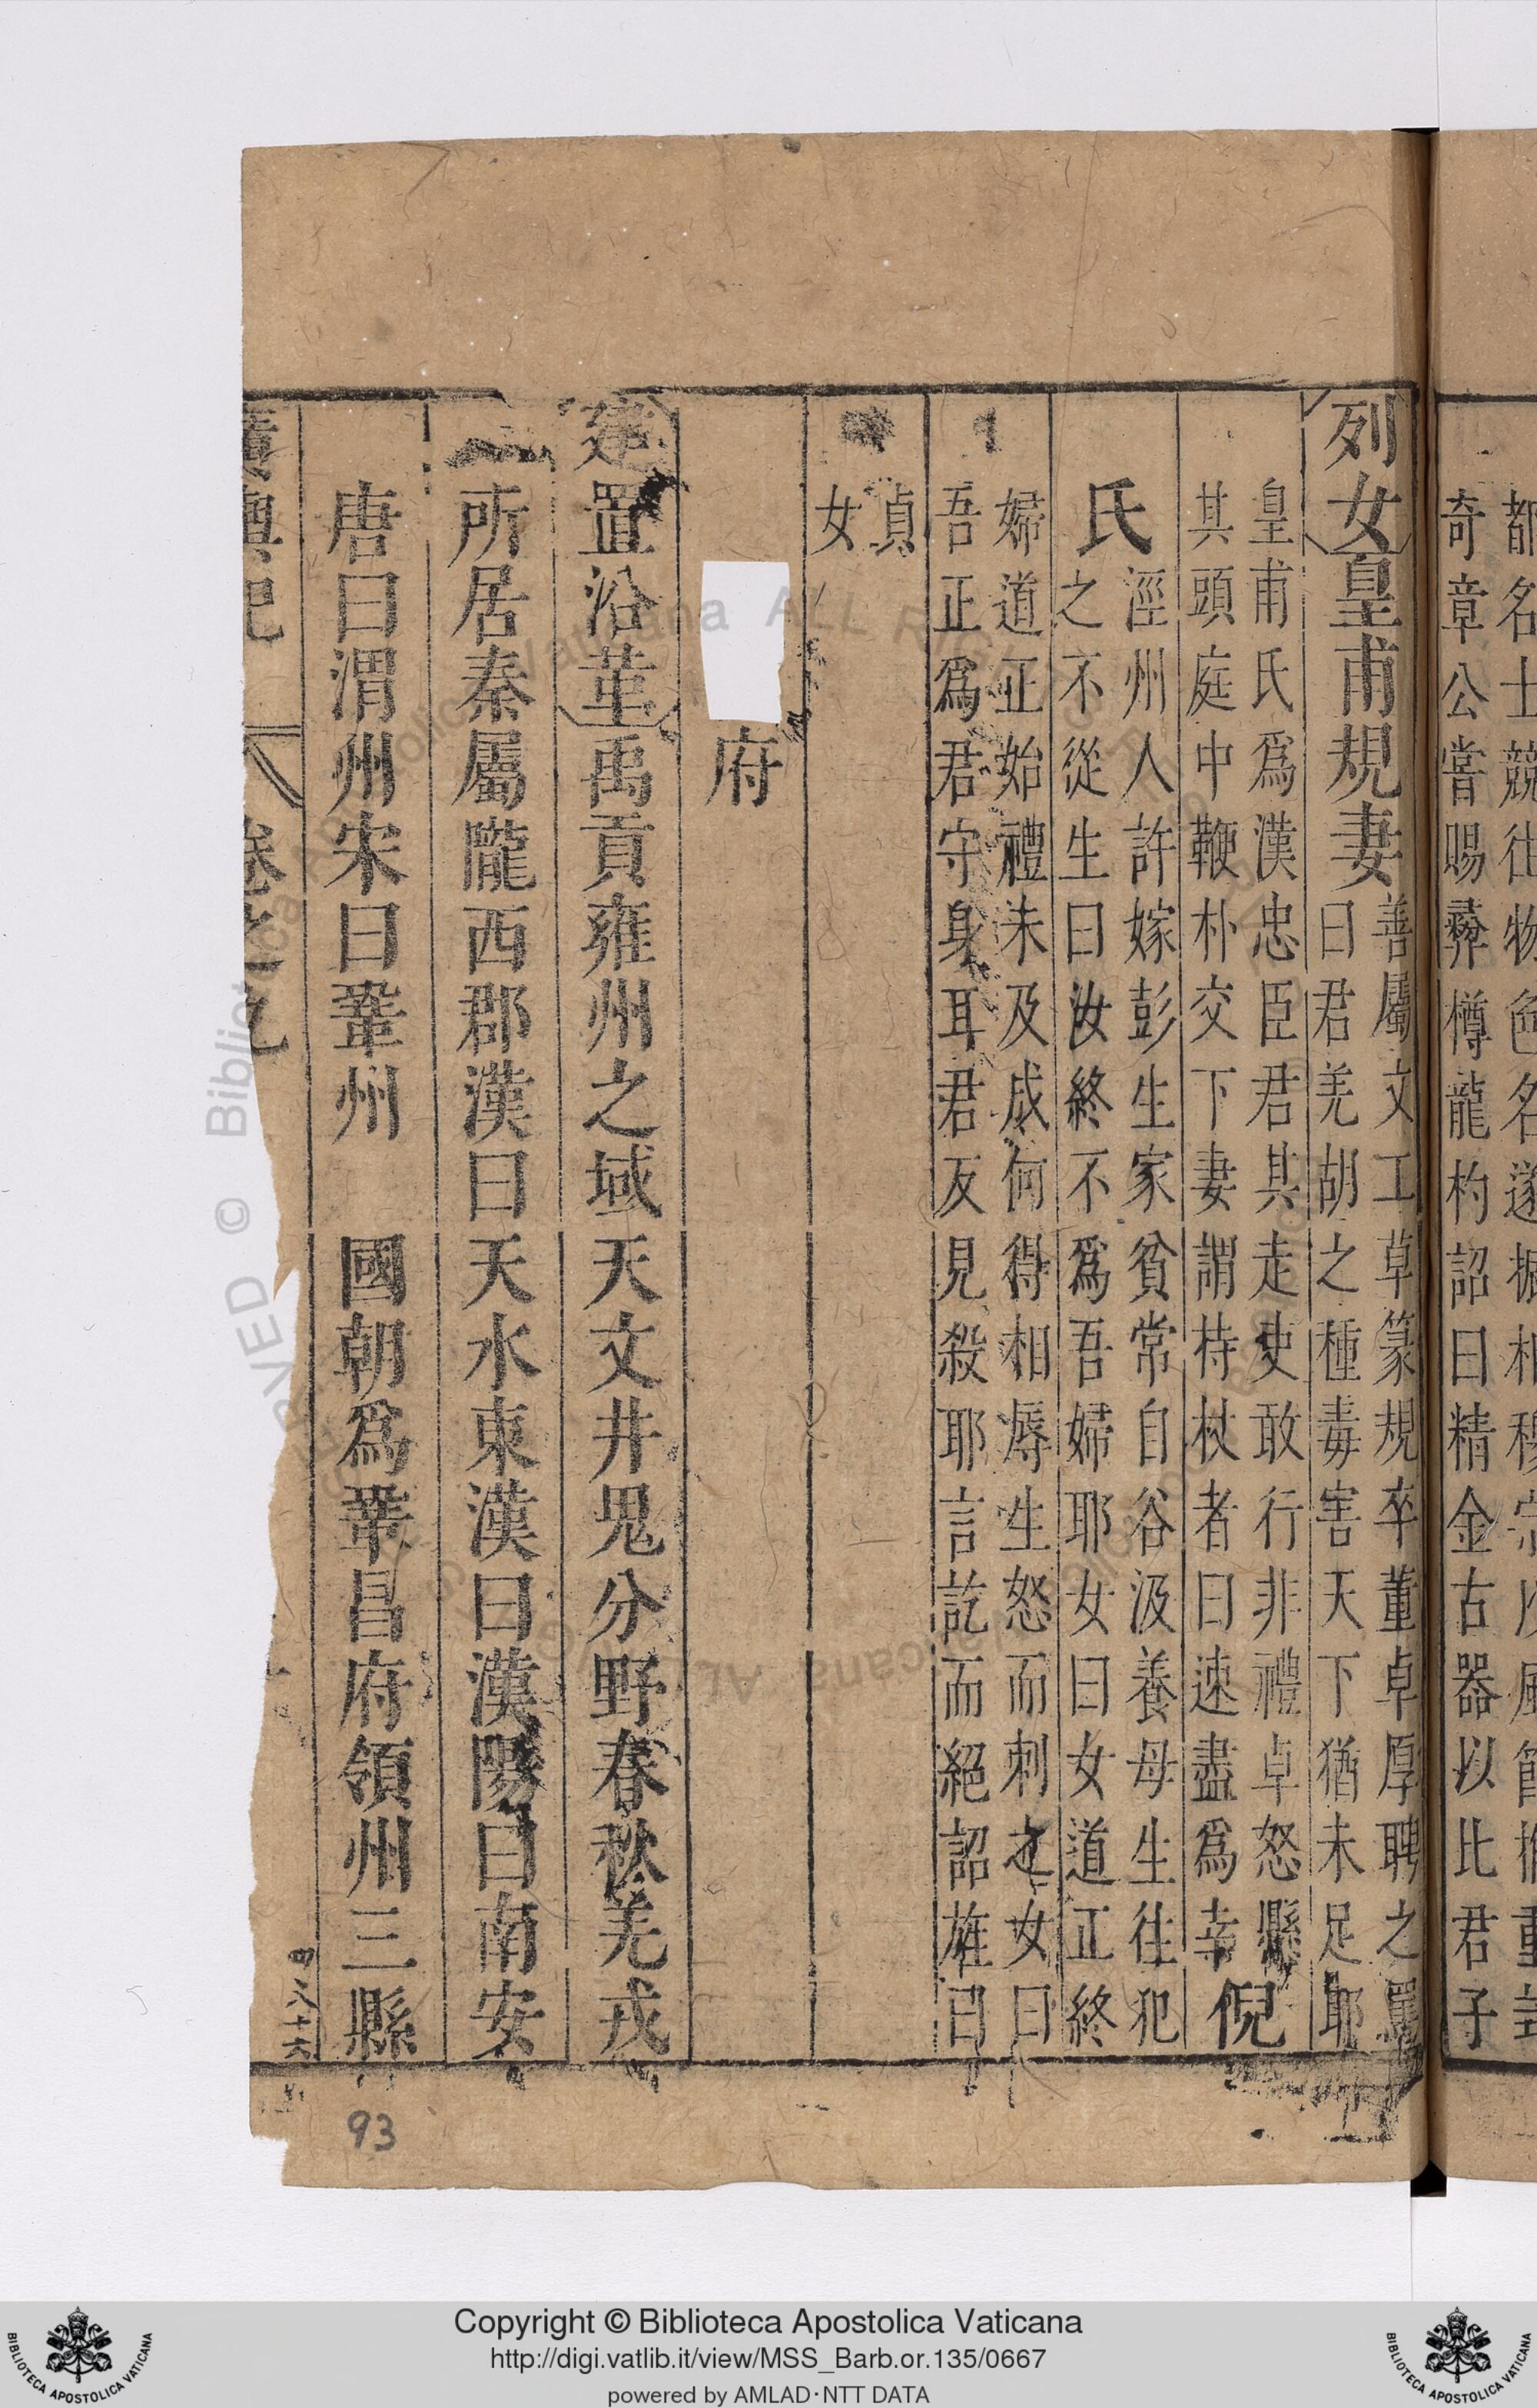 奇章公嘗賜彝樽龍杓詔曰精金古器以比君子
列女皇甫規妻善屬文工草篆規卒董卓厚聘之罵
曰君羌胡之種毒害天下猶未足耶
皇甫氏爲漢忠臣君其走吏敢行非禮卓怒懸
其頭庭中鞭朴交下妻謂持杖者曰速盡爲幸倪
氏涇州人許嫁彭生家貧常自谷汲養母生往犯
之不從生曰汝終不爲吾婦耶女曰女道正終
婦道正始禮未及成何得相辱生怒而刺之女曰
吾正爲君守身耳君反見殺耶言訖而絕詔旌曰
貞
女
府
建置沿革禹貢雍州之域天文井鬼分野春秋羌戎
所居秦屬隴西郡漢曰天水東漢曰漢陽曰南安
唐曰渭州宋曰鞏州 國朝爲鞏昌府領州三縣
廣輿記 卷之九
93
Copyright © Biblioteca Apostolica Vaticana
http://digi.vatlib.it/view/MSS_Barb.or.135/0667
powered by AMLAD·NTT DATA
BIBLIOTECA APOSTOLICA VATICANA
BIBLIOTECA APOSTOLICA VATICANA